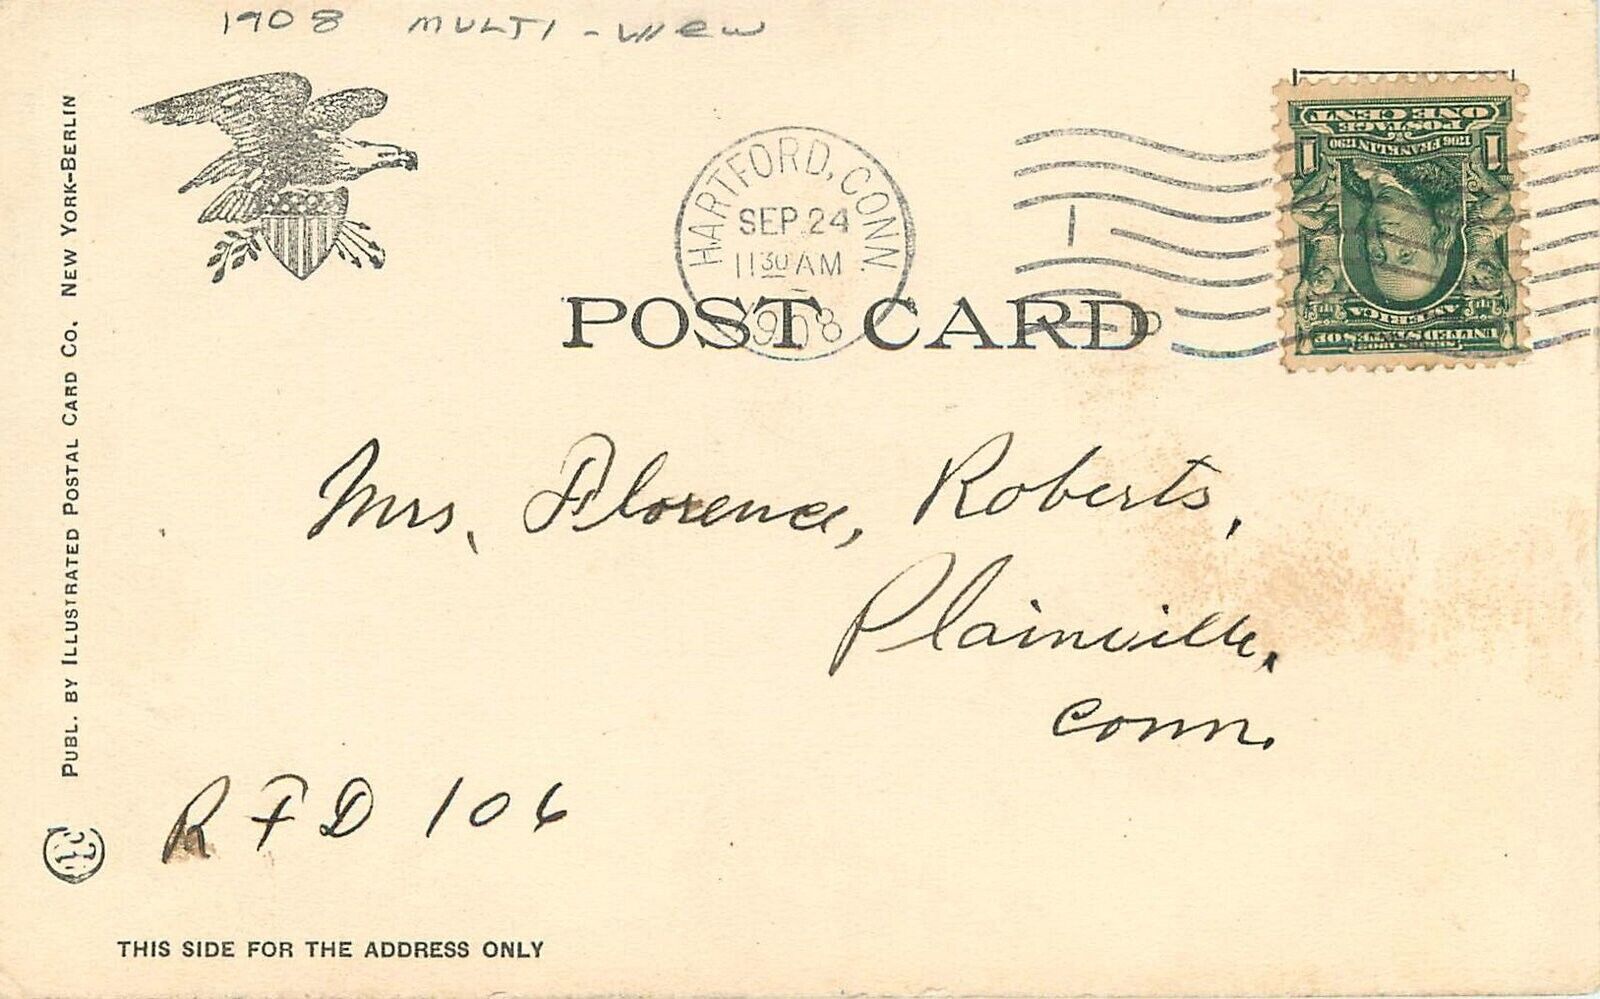 1908 MULTI-VIEW
PUBL. BY ILLUSTRATED POSTAL CARD CO. NEW YORK-BERLIN
HARTFORD, CONN.
SEP 24
11 30 AM
1908
1
POST CARD
ONE CENT
POSTAGE
1706 FRANKLIN 1790
1 1
SERIES 1902
UNITED STATES OF
AMERICA
Mrs, Florence, Roberts,
Plainville,
Conn.
R F D 106
THIS SIDE FOR THE ADDRESS ONLY